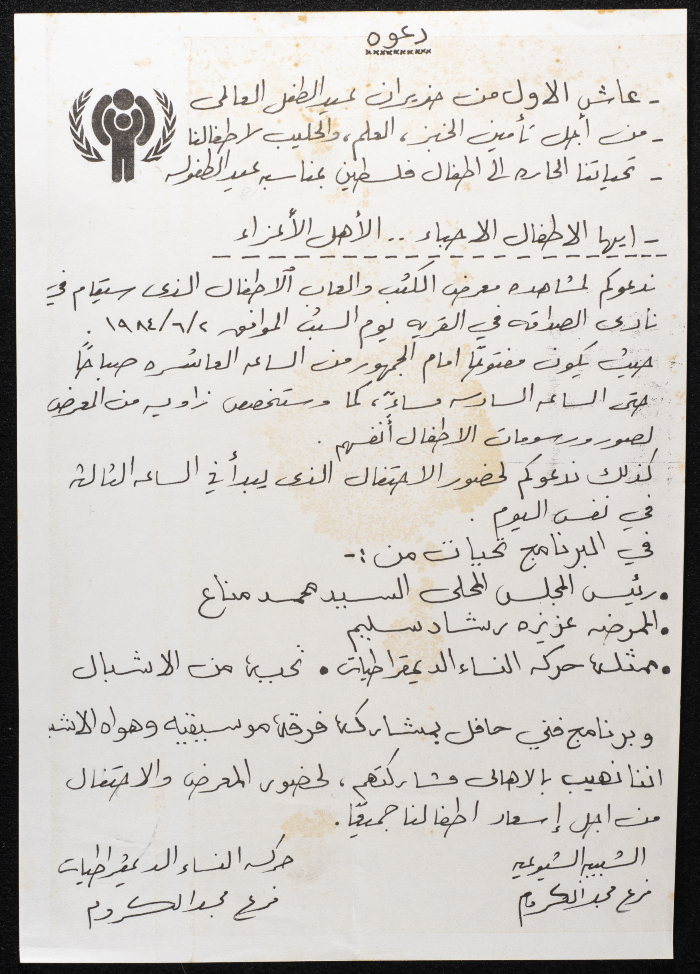 دعوه
- عاش الاول من حزيران عيد الطفل العالمي
- من أجل تأمين الخبز، العلم، والحليب لاطفالنا
- تحياتنا الحاره الى اطفال فلسطين بمناسبه عيد الطفوله
- ايها الاطفال الاحباء .. الأهل الأعزاء
ندعوكم لمشاهده معرض الكتب والعاب الاطفال الذي سيقام في
نادي الصداقه في القريه يوم السبت الموافق ١٩٨٤/٦/٢ .
حيث يكون مفتوحًا امام الجمهور من الساعه العاشره صباحًا
حتى الساعه السادسه مساءً، كما وستخصص زاويه من المعرض
لصور ورسومات الاطفال أنفسهم .
كذلك ندعوكم لحضور الاحتفال الذي يبدأ في الساعه الثالثه
في نفس اليوم .
في البرنامج تحيات من :-
• رئيس المجلس المحلي السيد محمد مناع
• الممرضه عزيزه رشاد سليم
• ممثلة حركه النساء الديمقراطيات • تحية من الاشبال
وبرنامج فني حافل بمشاركة فرقة موسيقيه وهواه الاشب
اننا نهيب بالاهالي مشاركتهم، لحضور المعرض والاحتفال
من اجل إسعاد اطفالنا جميعًا .
الشبيبه الشيوعيه
فرع مجد الكروم
حركه النساء الديمقراطيات
فرع مجد الكروم